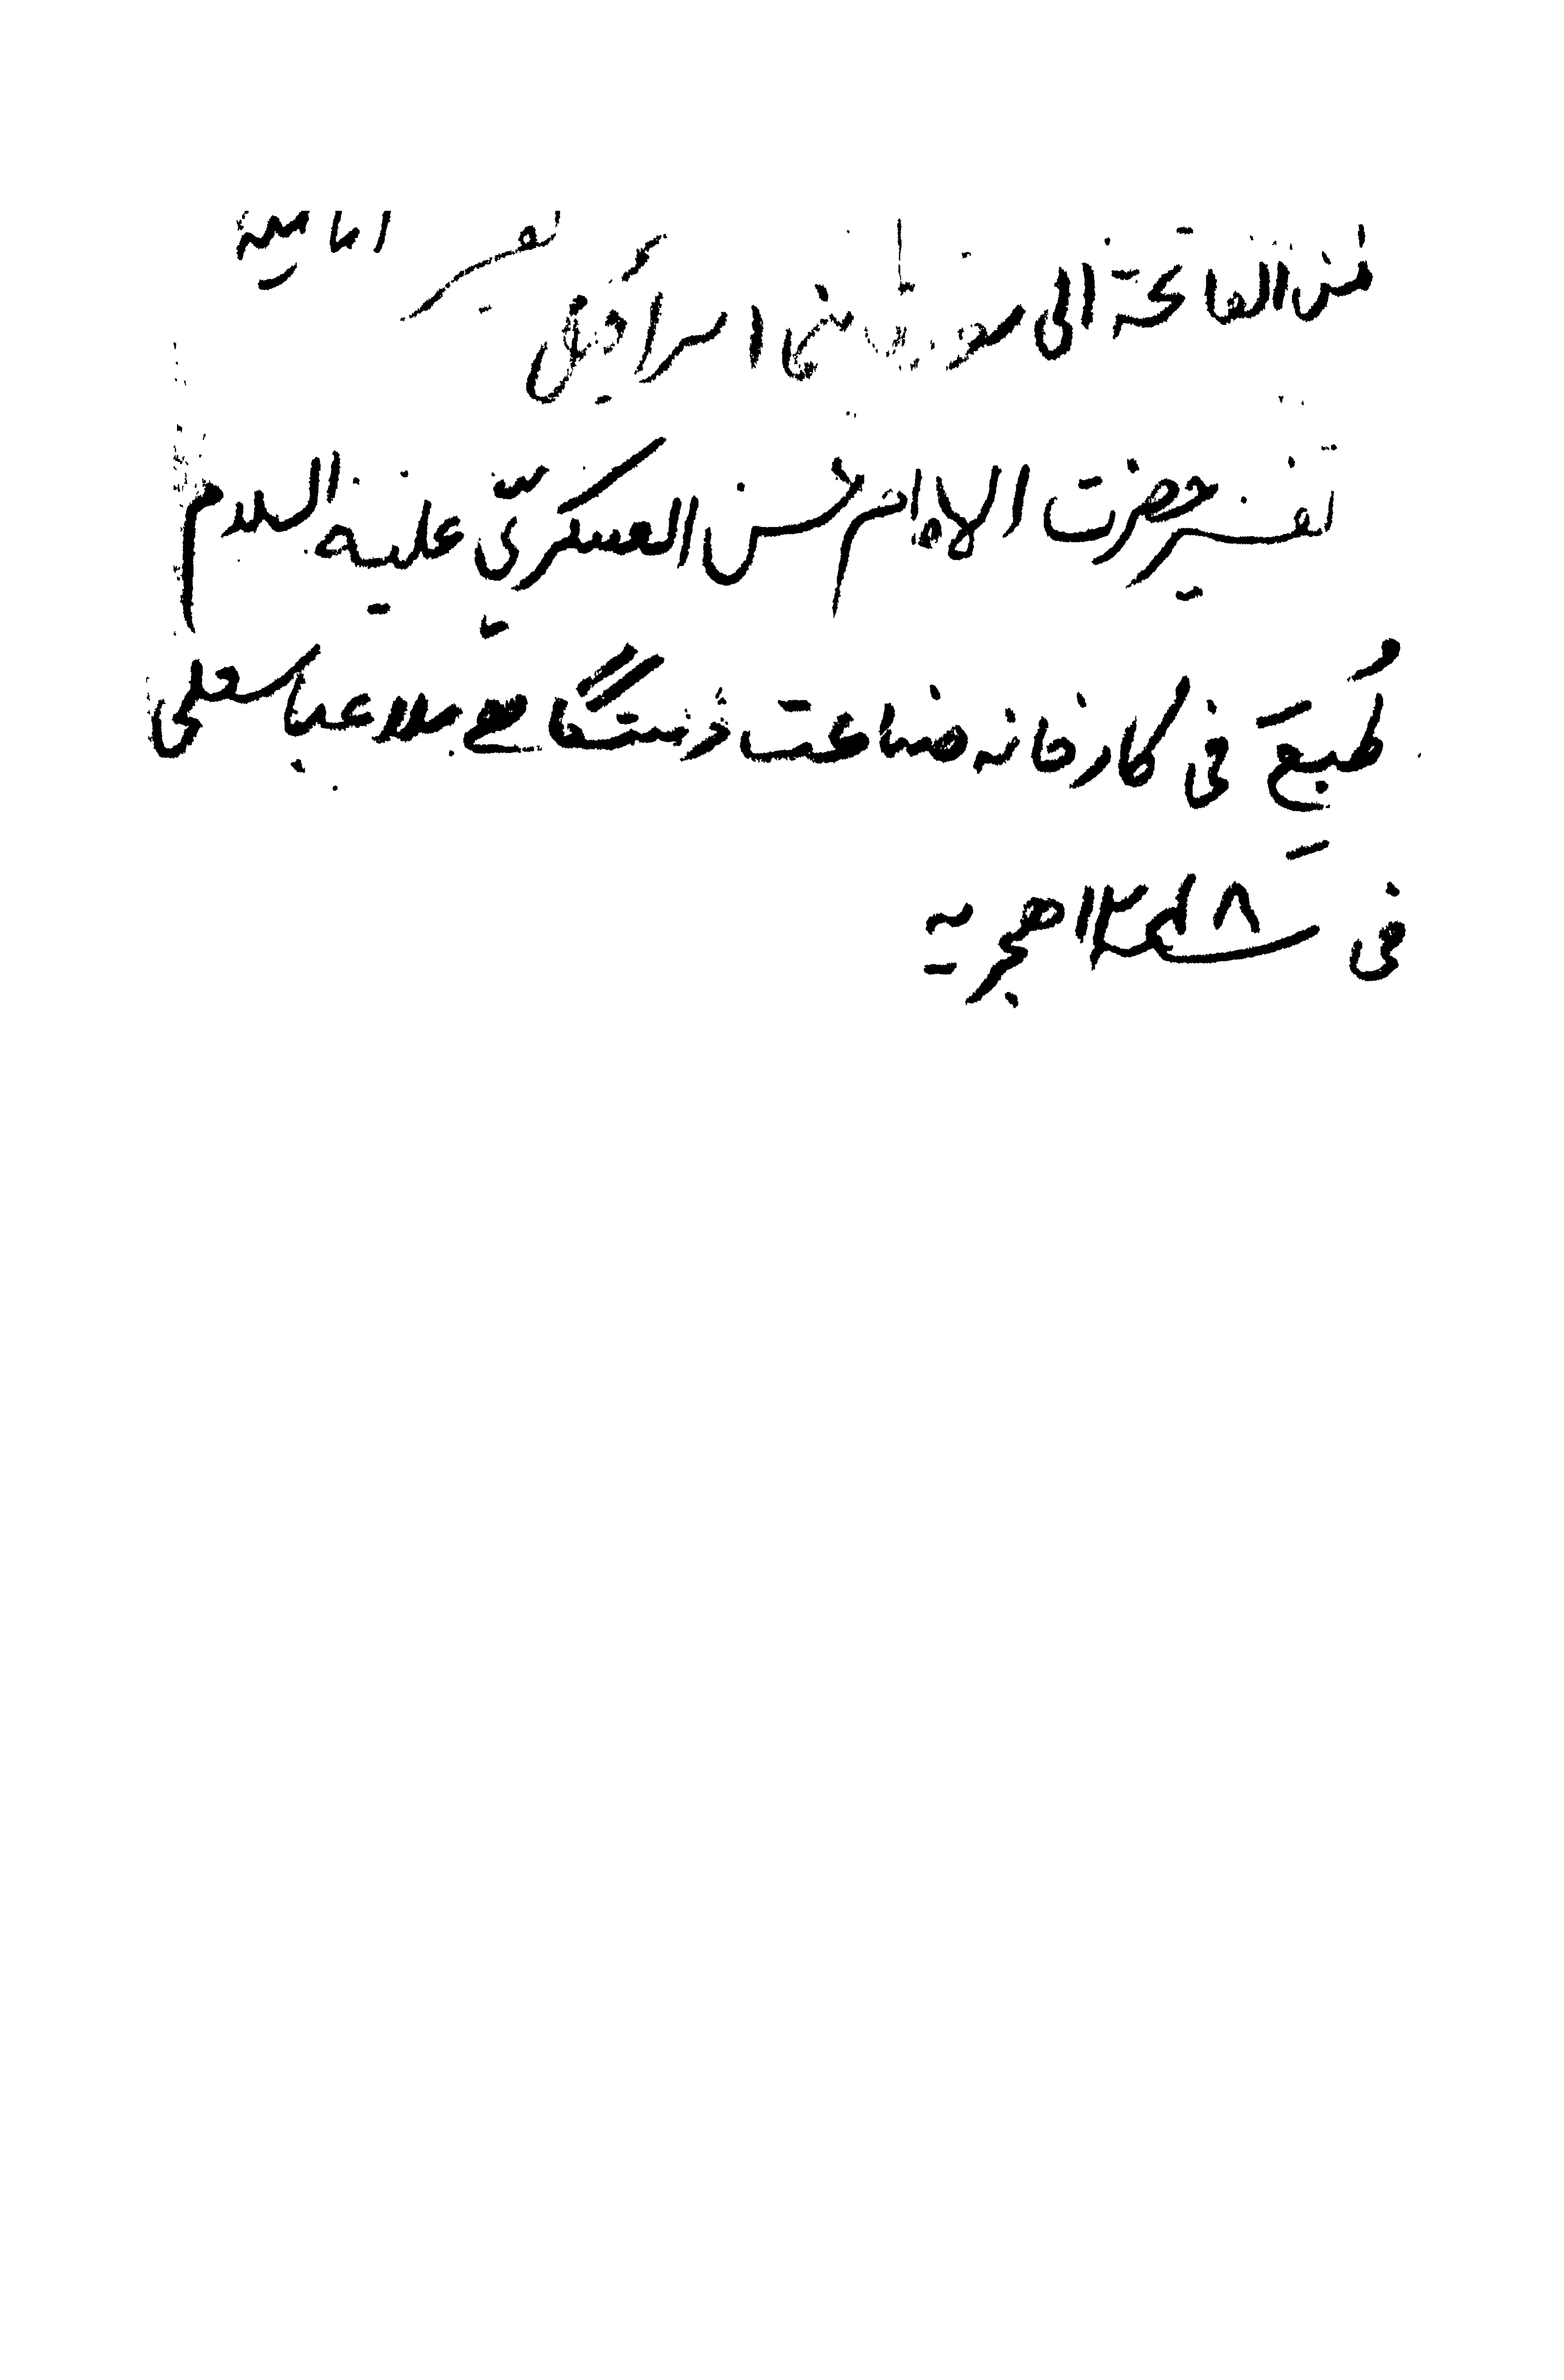 تفسير امامیه
من الفاتحة الى سورة بنی اسرائیل
تفسير حضرت الامام حسن العسكريّ عليه السلام
طُبِعَ فی کارخانه صناعت دستگاهی ملا عباسعلی
فی هجریه